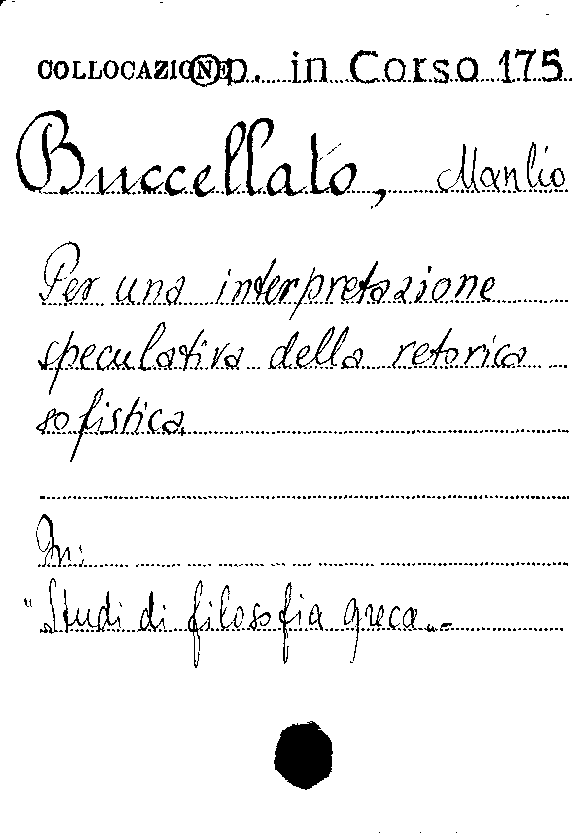 COLLOCAZIONE Op. in Corso 175
Buccellato, Manlio
Per una interpretazione
speculativa della retorica
sofistica
In:
"Studi di filosofia greca"-